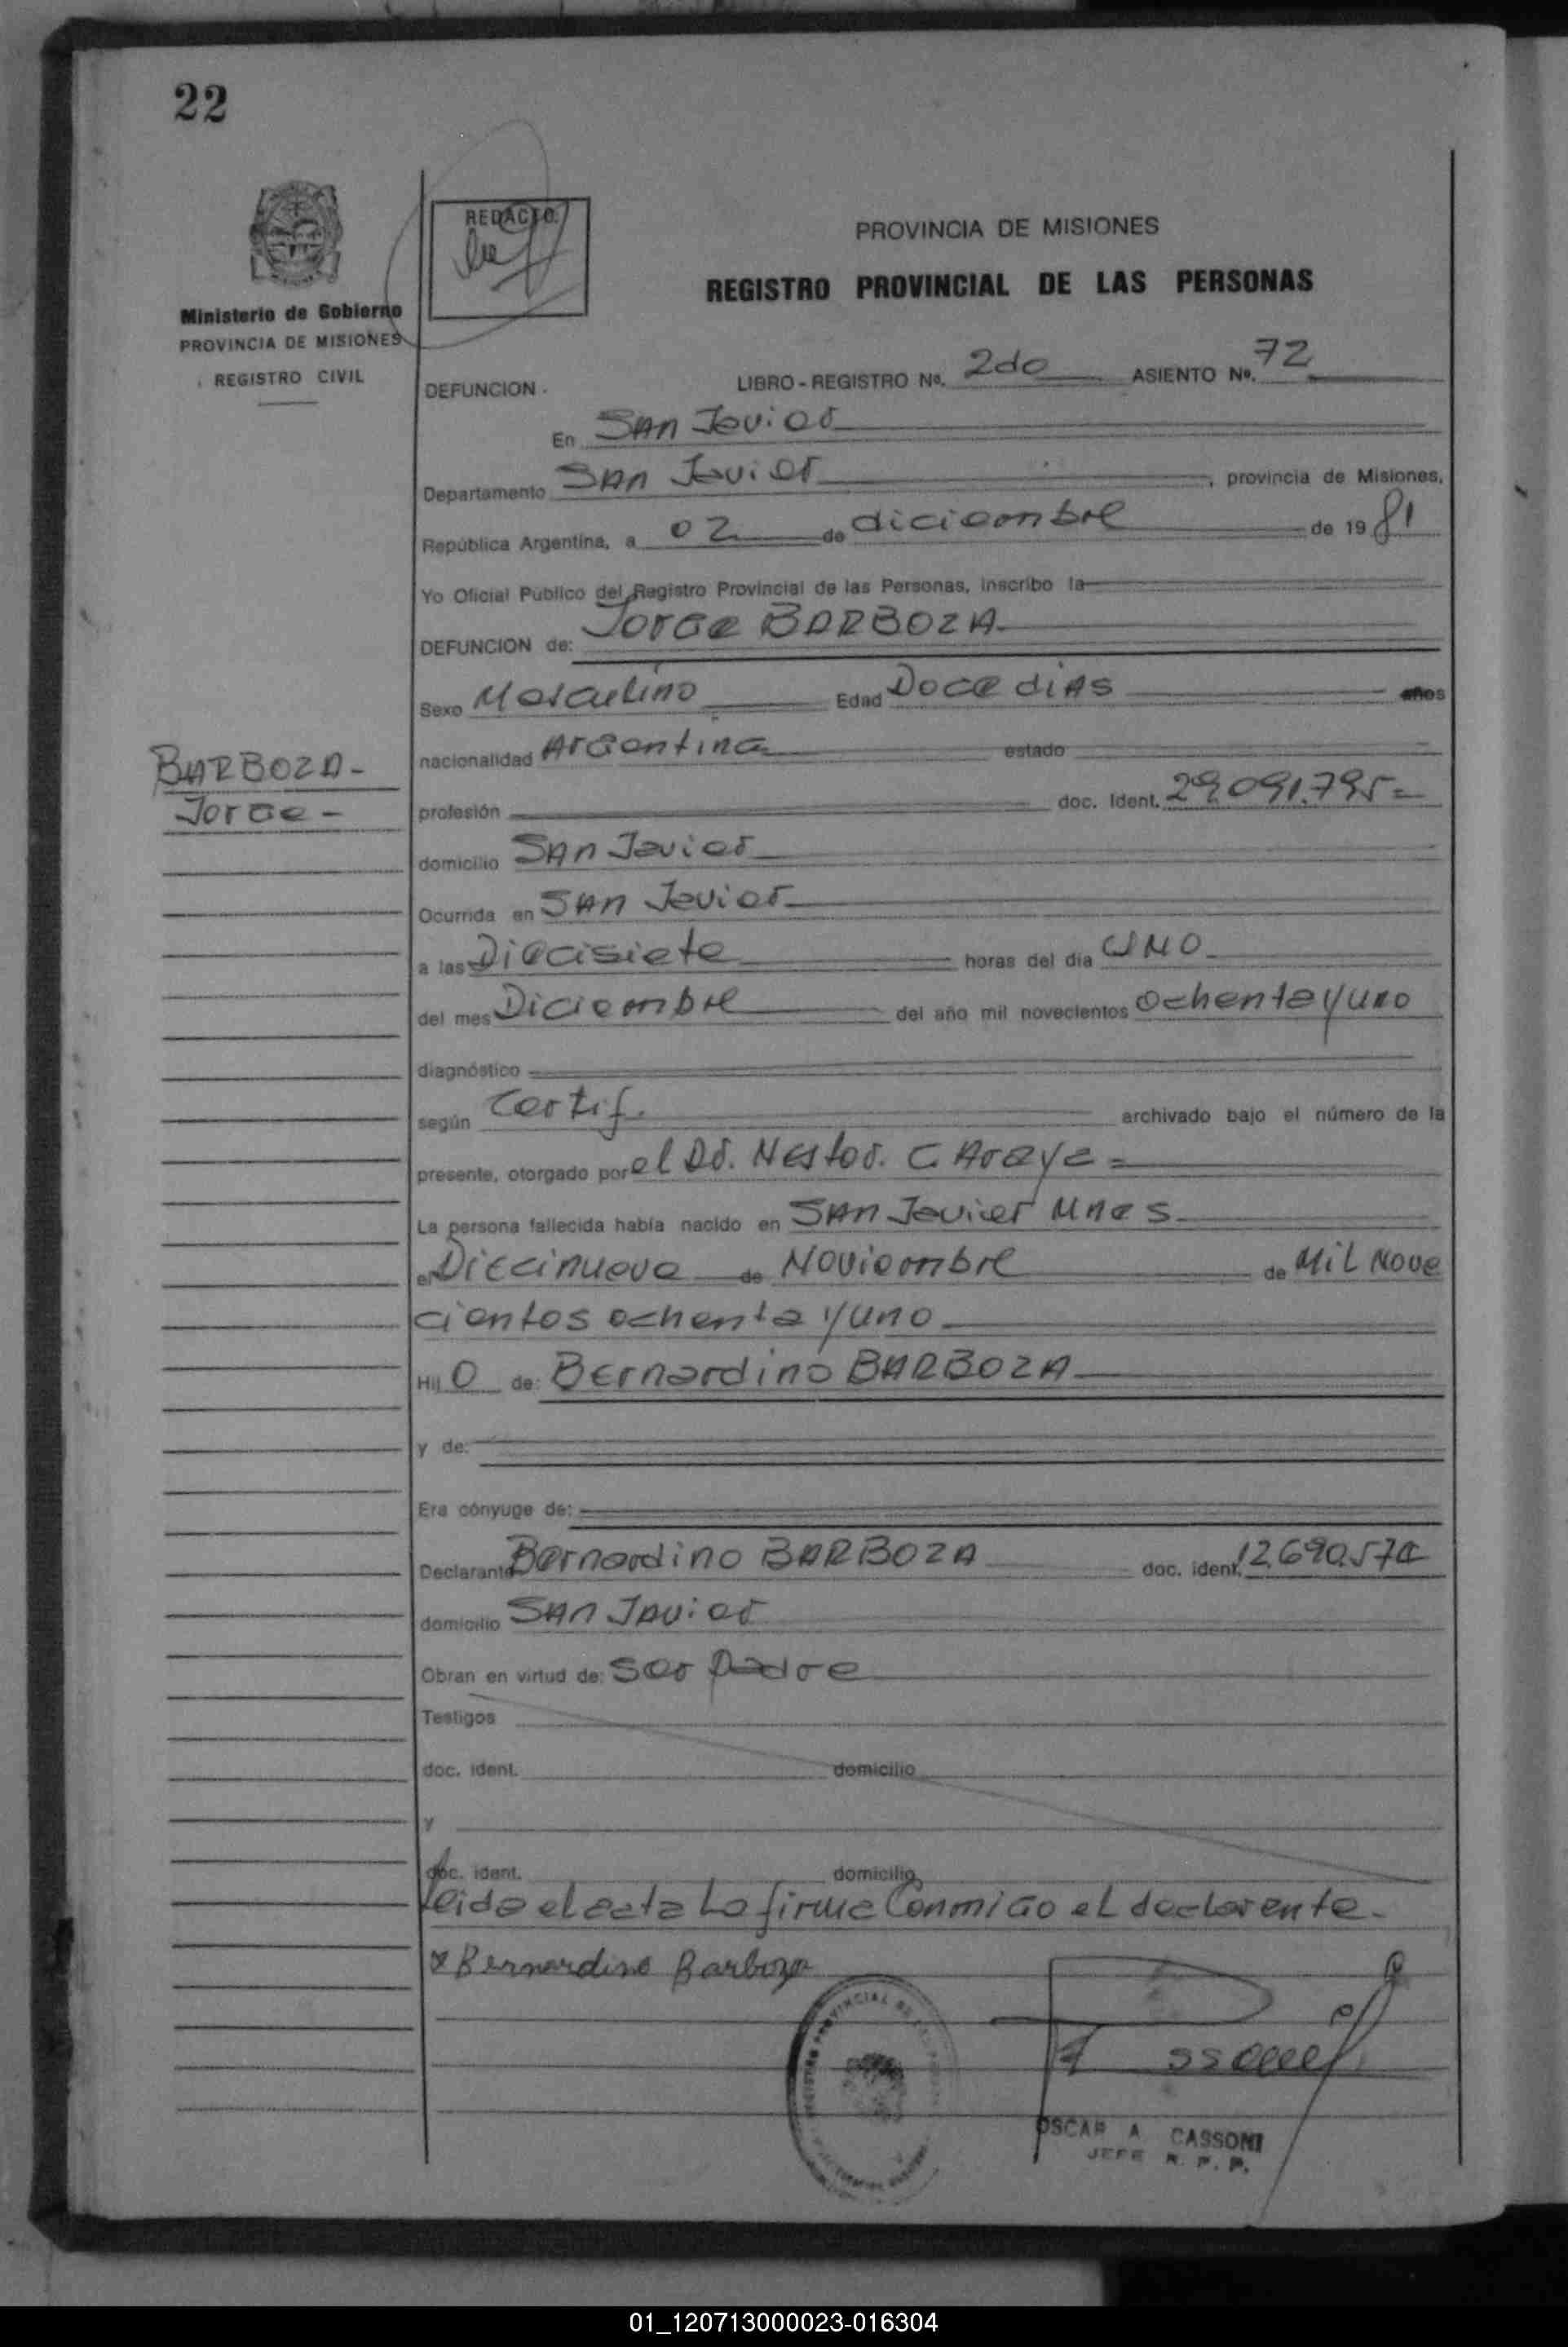 22
REDACTO.
PROVINCIA DE MISIONES
REGISTRO PROVINCIAL DE LAS PERSONAS
Ministerio de Gobierno
PROVINCIA DE MISIONES
REGISTRO CIVIL
DEFUNCION. LIBRO-REGISTRO No. 2do ASIENTO No. 72
En San Javier
Departamento San Javier, provincia de Misiones,
República Argentina, a 02 de diciembre de 1981
Yo Oficial Público del Registro Provincial de las Personas, inscribo la
DEFUNCION de: Jorge BARBOZA
Sexo Masculino Edad Doce dias años
nacionalidad Argentina estado
BARBOZA-
Jorge-
profesión doc. Ident. 29.091.795=
domicilio San Javier
Ocurrida en San Javier
a las Diecisiete horas del día UNO
del mes Diciembre del año mil novecientos Ochenta y uno
diagnóstico
según Certif. archivado bajo el número de la
presente, otorgado por el Dr. Nestor. C Araya=
La persona fallecida había nacido en San Javier Mnes
el Diecinueve de Noviembre de Mil Nove
cientos ochenta y uno
Hij o de: Bernardino BARBOZA
y de:
Era cónyuge de:
Declarante Bernardino BARBOZA doc. ident.
domicilio San Javier
Obran en virtud de: ser padre
Testigos
doc. ident. domicilio
y
doc. ident. domicilio
leida el acta La firma Conmigo el declarante-
x Bernardino Barboza
OSCAR A CASSONI
JEFE R. P. P.
01_120713000023-016304